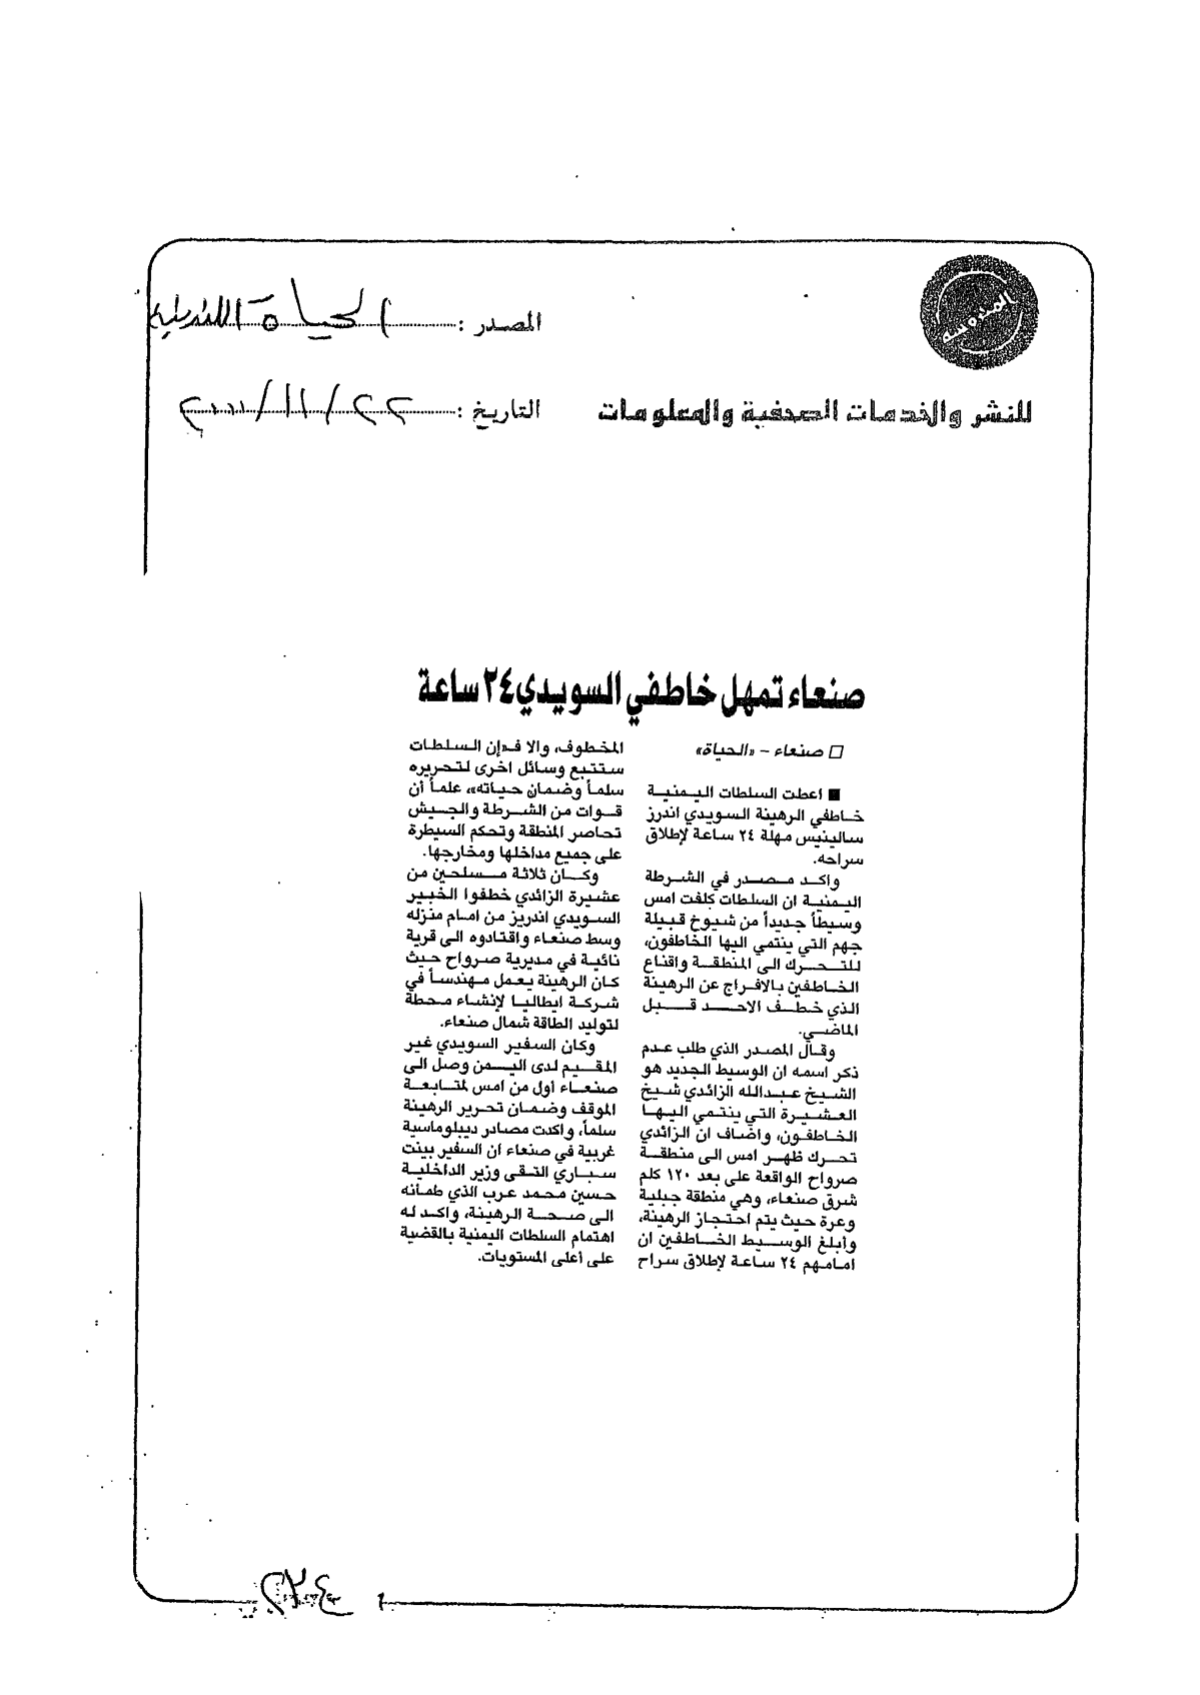 المصدر : الحياة اللندنية
للنشر والخدمات الصحفية والمعلومات
التاريخ : ٢٢/١١/٢٠٠٠
صنعاء تمهل خاطفي السويدي ٢٤ ساعة
□ صنعاء – «الحياة»
■ اعطت السلطات اليمنية
خاطفي الرهينة السويدي اندرز
سالينيس مهلة ٢٤ ساعة لإطلاق
سراحه.
واكد مصدر في الشرطة
اليمنية ان السلطات كلفت امس
وسيطاً جديداً من شيوخ قبيلة
جهم التي ينتمي اليها الخاطفون،
للتحرك الى المنطقة واقناع
الخاطفين بالافراج عن الرهينة
الذي خطف الاحد قبل
الماضي.
وقال المصدر الذي طلب عدم
ذكر اسمه ان الوسيط الجديد هو
الشيخ عبدالله الزائدي شيخ
العشيرة التي ينتمي اليها
الخاطفون، واضاف ان الزائدي
تحرك ظهر امس الى منطقة
صرواح الواقعة على بعد ١٢٠ كلم
شرق صنعاء، وهي منطقة جبلية
وعرة حيث يتم احتجاز الرهينة،
وأبلغ الوسيط الخاطفين ان
امامهم ٢٤ ساعة لإطلاق سراح
المخطوف، والا فإن السلطات
ستتبع وسائل اخرى لتحريره
سلماً وضمان حياته»، علماً أن
قوات من الشرطة والجيش
تحاصر المنطقة وتحكم السيطرة
على جميع مداخلها ومخارجها.
وكان ثلاثة مسلحين من
عشيرة الزائدي خطفوا الخبير
السويدي اندريز من امام منزله
وسط صنعاء واقتادوه الى قرية
نائية في مديرية صرواح حيث
كان الرهينة يعمل مهندساً في
شركة ايطاليا لإنشاء محطة
لتوليد الطاقة شمال صنعاء.
وكان السفير السويدي غير
المقيم لدى اليمن وصل الى
صنعاء أول من امس لمتابعة
الموقف وضمان تحرير الرهينة
سلماً، واكدت مصادر ديبلوماسية
غربية في صنعاء ان السفير بينت
سباري التقى وزير الداخلية
حسين محمد عرب الذي طمأنه
الى صحة الرهينة، واكد له
اهتمام السلطات اليمنية بالقضية
على أعلى المستويات.